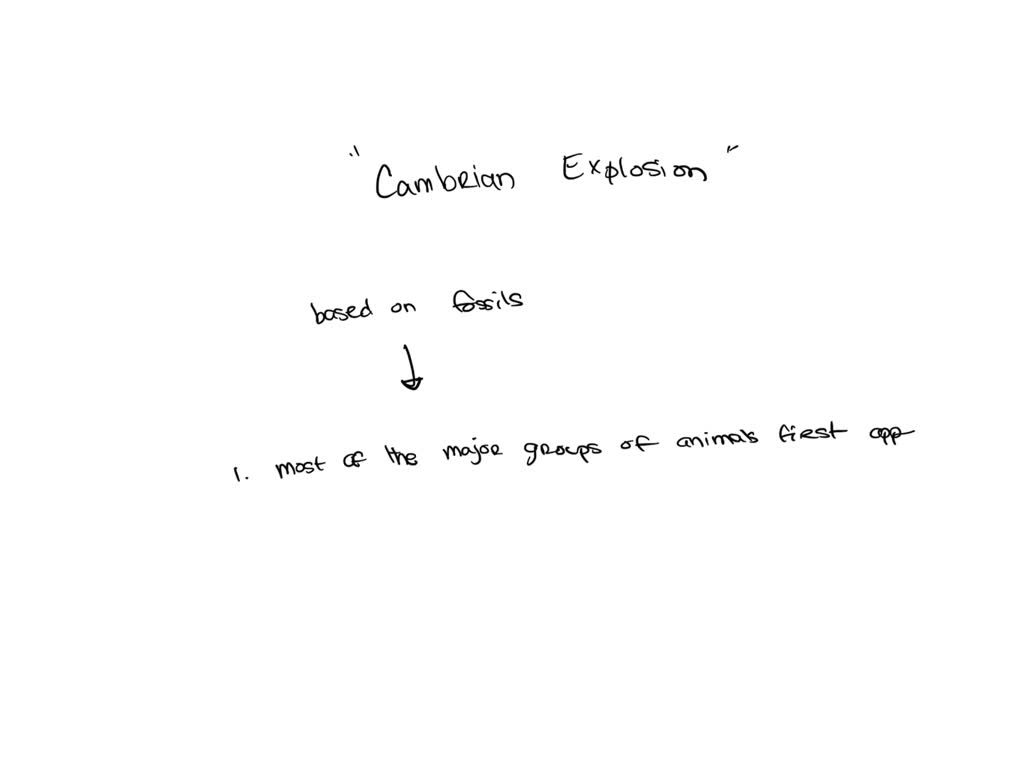 "Cambrian Explosion"
based on fossils
1. most of the major groups of animals first app